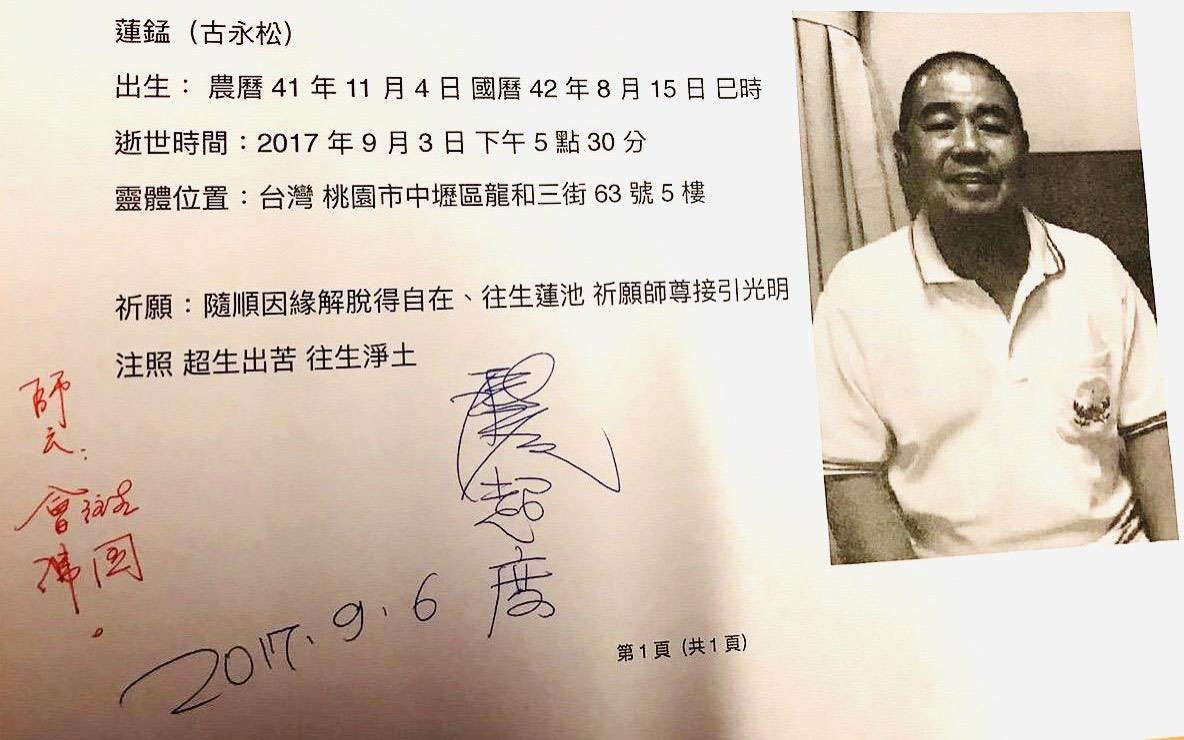 蓮錳（古永松）
出生： 農曆 41 年 11 月 4 日 國曆 42 年 8 月 15 日 巳時
逝世時間：2017 年 9 月 3 日 下午 5 點 30 分
靈體位置：台灣 桃園市中壢區龍和三街 63 號 5 樓
祈願：隨順因緣解脫得自在、往生蓮池 祈願師尊接引光明
注照 超生出苦 往生淨土
師云：
會往生
佛國。
超度
2017.9.6
第 1 頁（共 1 頁）